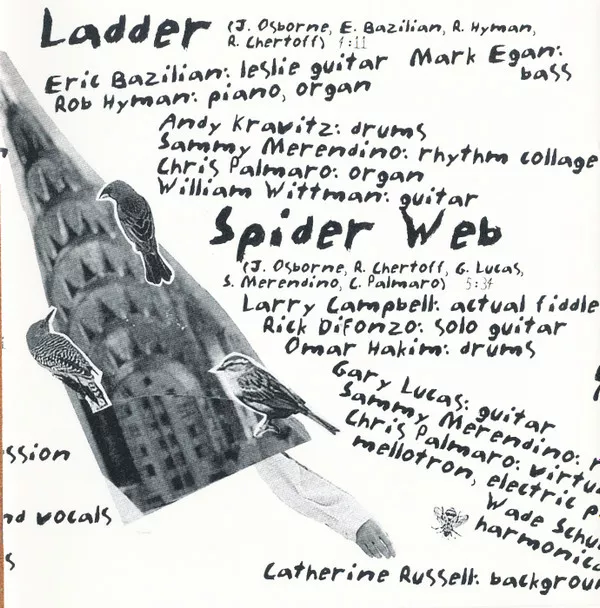 Ladder (J. Osborne, E. Bazilian, R. Hyman,
R. Chertoff) 4:11
Eric Bazilian: leslie guitar Mark Egan:
bass
Rob Hyman: piano, organ
Andy Kravitz: drums
Sammy Merendino: rhythm collage
Chris Palmaro: organ
William Wittman: guitar
Spider Web
(J. Osborne, R. Chertoff, G. Lucas,
S. Merendino, C. Palmaro) 5:34
Larry Campbell: actual fiddle
Rick DiFonzo: solo guitar
Omar Hakim: drums
Gary Lucas: guitar
Sammy Merendino: r
Chris Palmaro: virtu
mellotron, electric p
Wade Schu
harmonica
Catherine Russell: backgrou
ssion
nd vocals
s